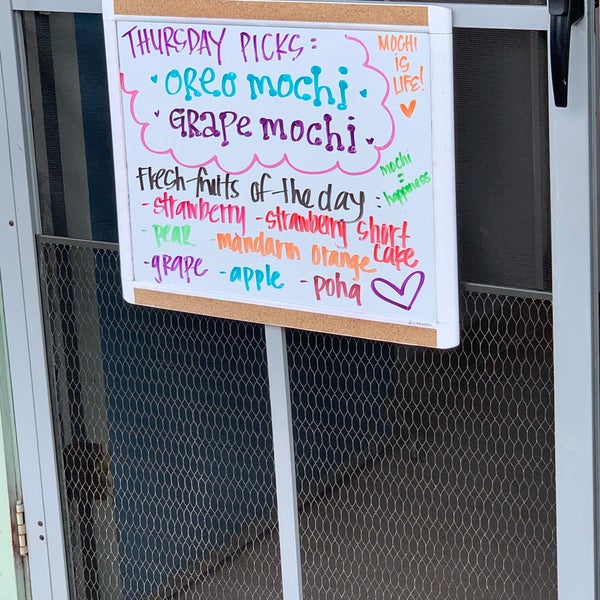 THURSDAY PICKS:
OREO mochi
GRAPE mochi
MOCHI
IS
LIFE!
Flesh fruits of the day:
mochi
=
happiness
- strawberry - strawberry short cake
- pear - mandarin orange
- grape - apple - poha